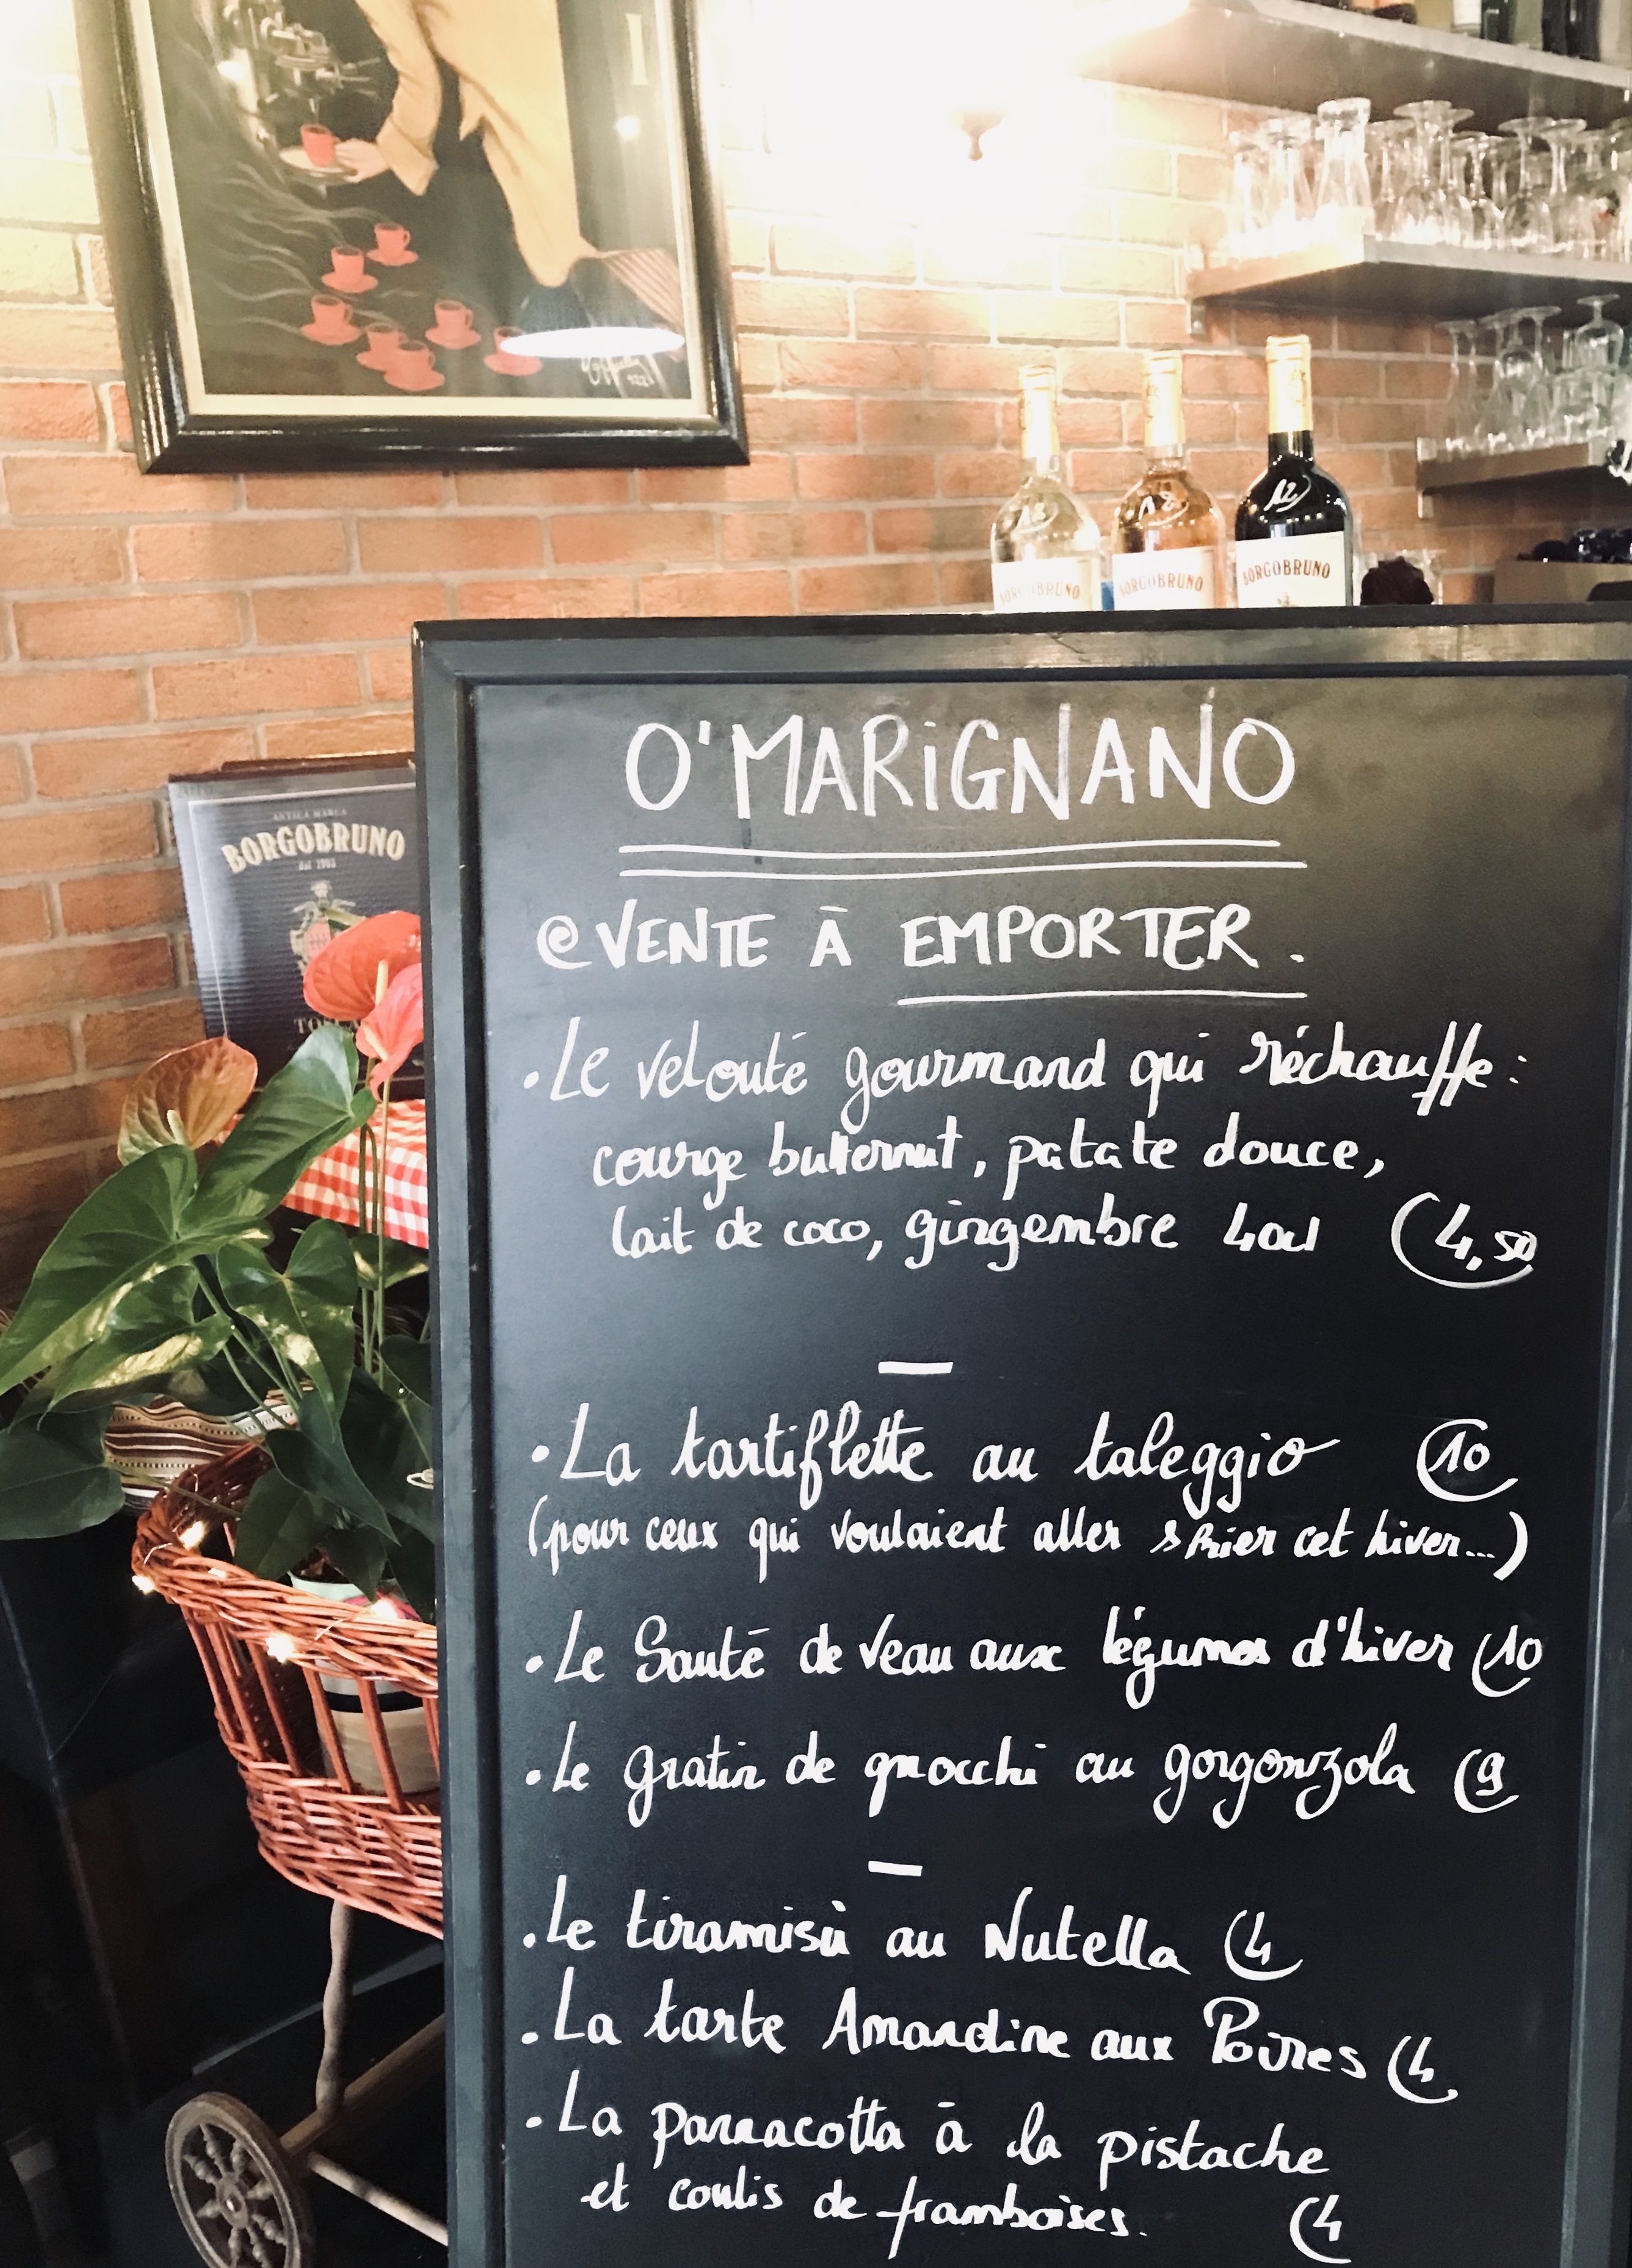 12
12
12
BORGOBRUNO
BORGOBRUNO
BORGOBRUNO
ANTICA MARCA
BORGOBRUNO
dal 1903
O'MARiGNANO
VENTE À EMPORTER.
• Le velouté gourmand qui réchauffe :
courge butternut, patate douce,
lait de coco, gingembre 40cl 4,50
—
• La tartiflette au taleggio 10
(pour ceux qui voulaient aller skier cet hiver...)
• Le Sauté de veau aux légumes d'hiver 10
• Le gratin de gnocchi au gorgonzola 9
—
• Le tiramisù au Nutella 4
• La tarte Amandine aux Poires 4
• La pannacotta à la pistache
et coulis de framboises. 4